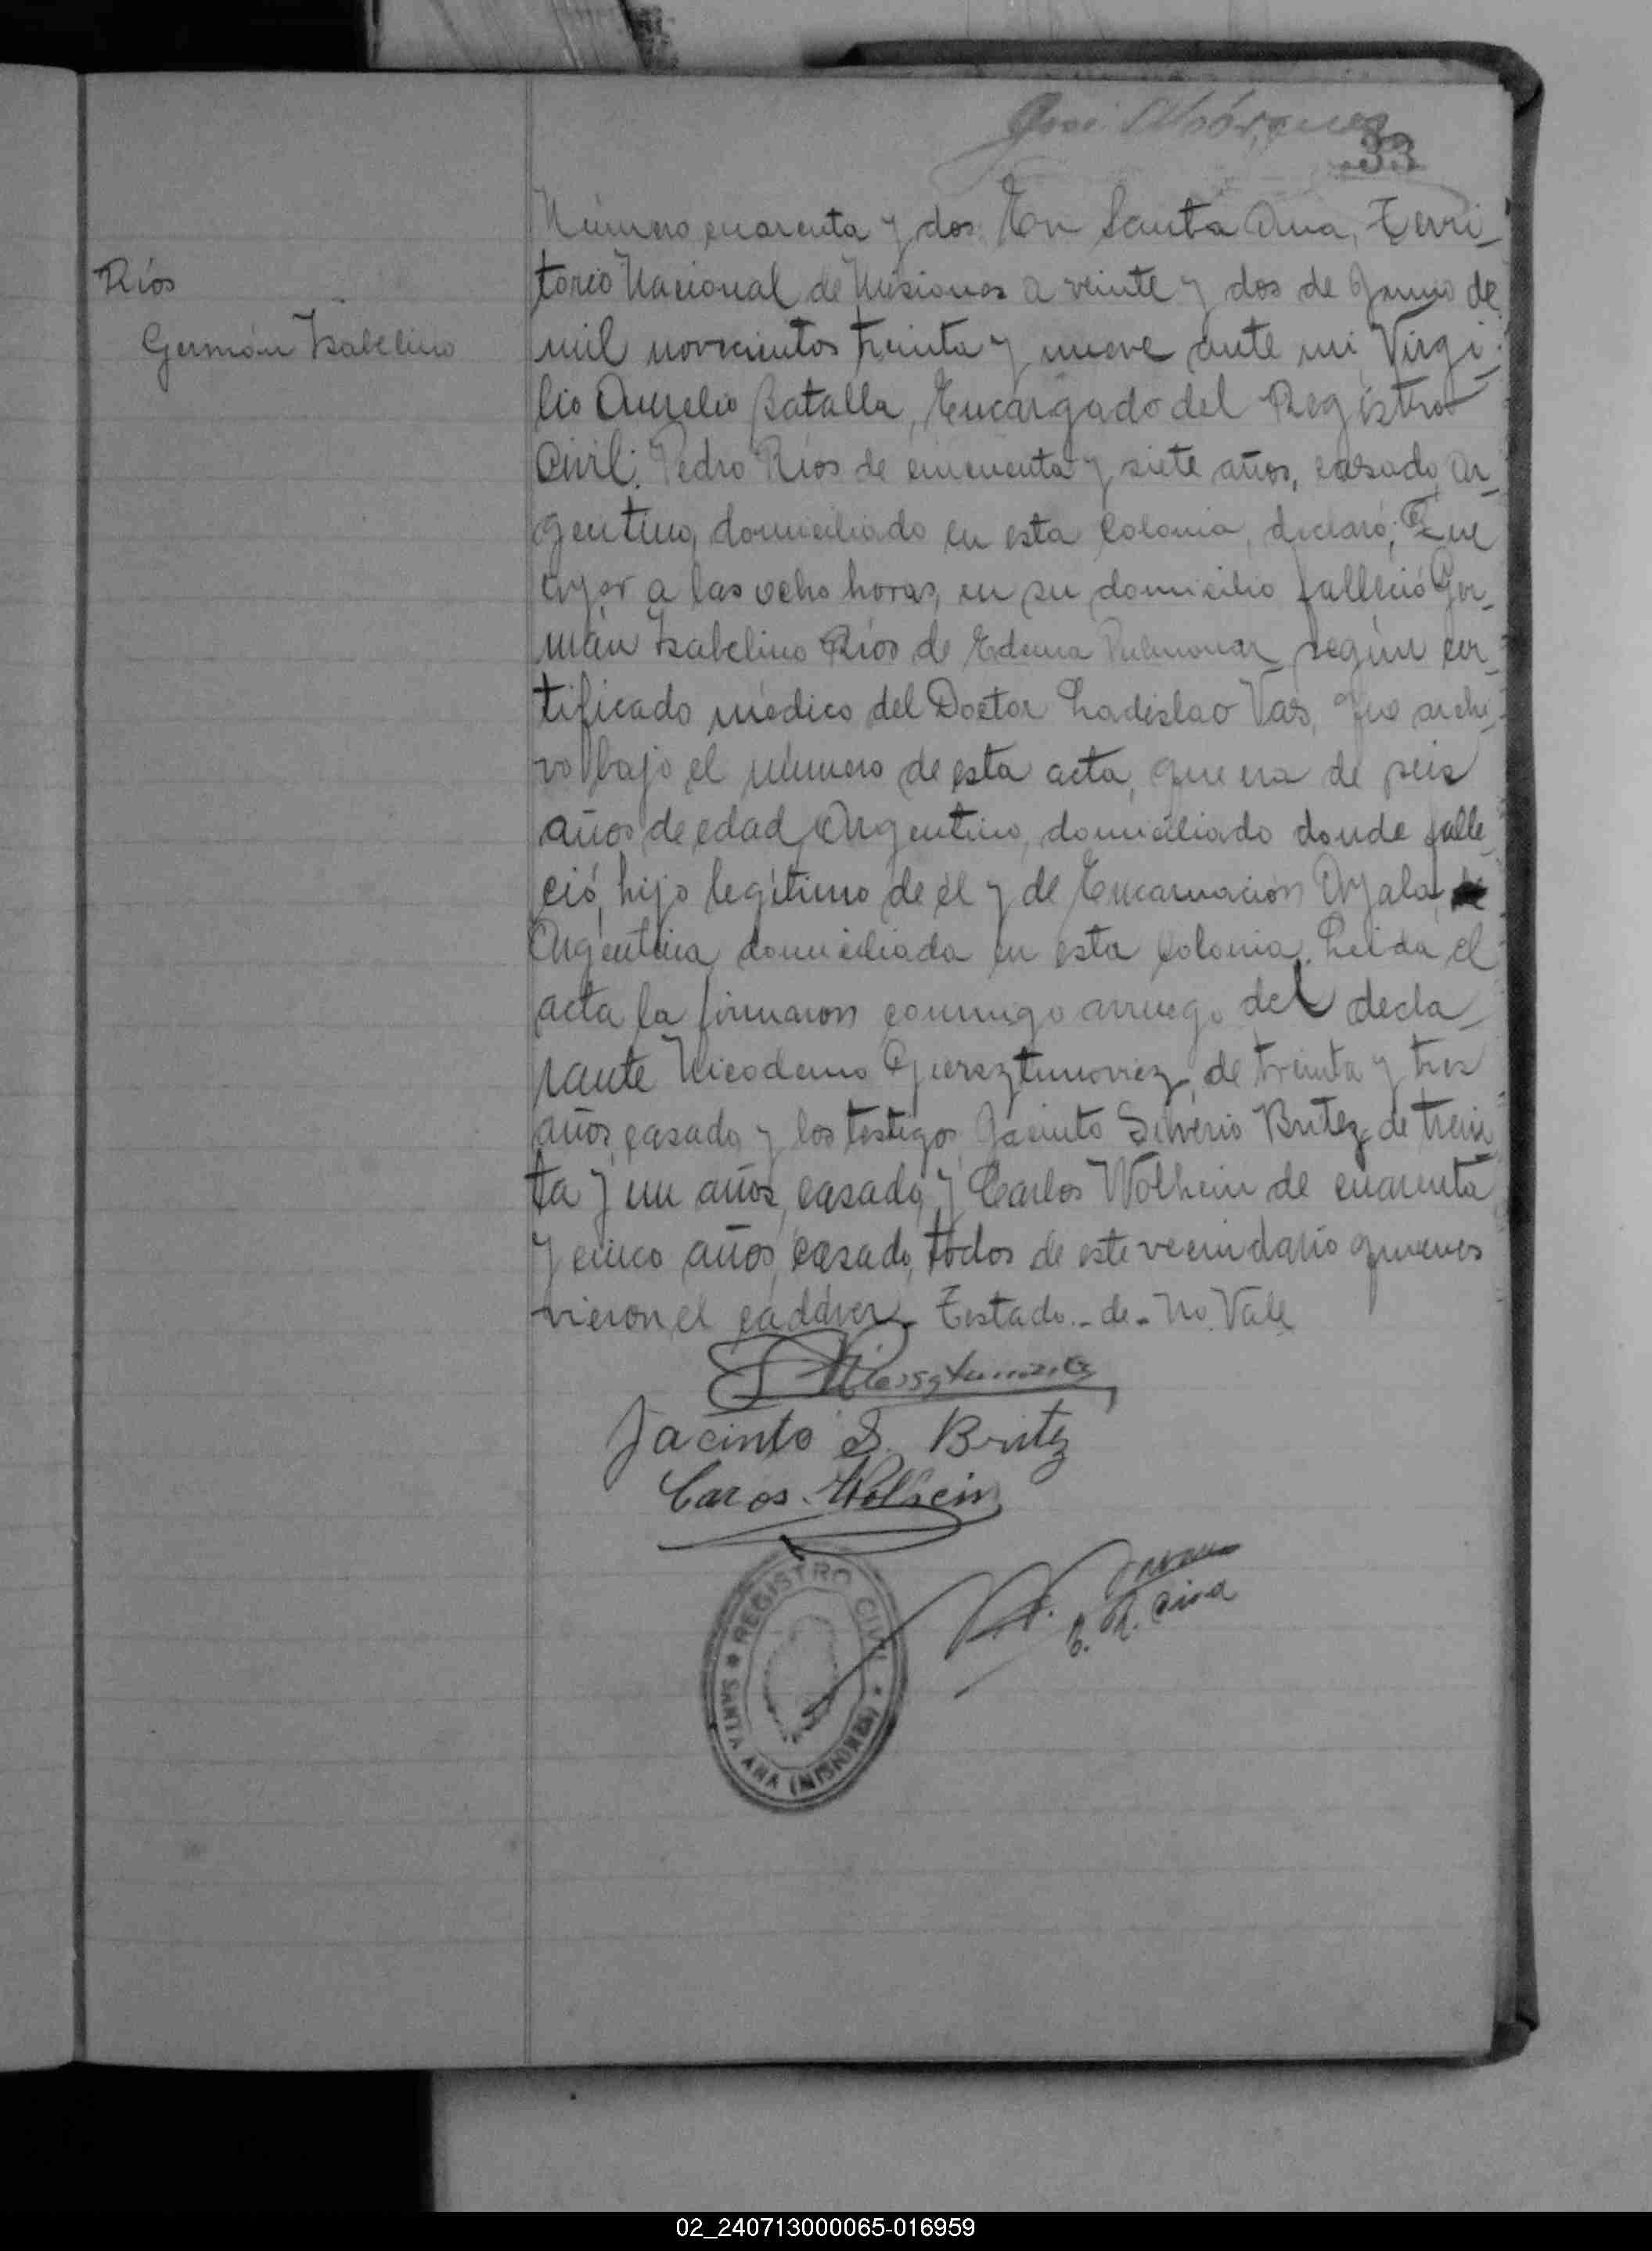 33
Número cuarenta y dos. En Santa Ana, Terri-
Ríos
torio Nacional de Misiones a veinte y dos de Junio de
Germán Isabelino
mil novecientos treinta y nueve ante mi, Virgi-
lio Aurelio Batalla, Encargado del Registro
Civil: Pedro Ríos de cincuenta y siete años, casado, Ar-
gentino, domiciliado en esta Colonia, declaró; Que
ayer a las ocho horas, en su domicilio falleció Ger-
mán Isabelino Ríos de Edema Pulmonar según cer-
tificado médico del Doctor Ladislao Vas, que archi-
vo bajo el número de esta acta, que era de seis
años de edad, Argentino, domiciliado donde falle-
ció, hijo legítimo de él y de Encarnación Ayala, de
Argentina domiciliada en esta Colonia. Leida el
acta la firmaron conmigo arruego del decla-
rante Nicodemo de treinta y tres
años, casado, y los testigos, Jacinto Silverio Britez de trein-
ta y un años, casado, y Carlos Wolhein de cuarenta
y cinco años, casado, todos de este vecindario quienes
vieron el cadáver. Testado.-de-No Vale
Jacinto S. Britez
Caros Wolhein
REGISTRO CIVIL
SANTA ANA (MISIONES)
02_240713000065-016959